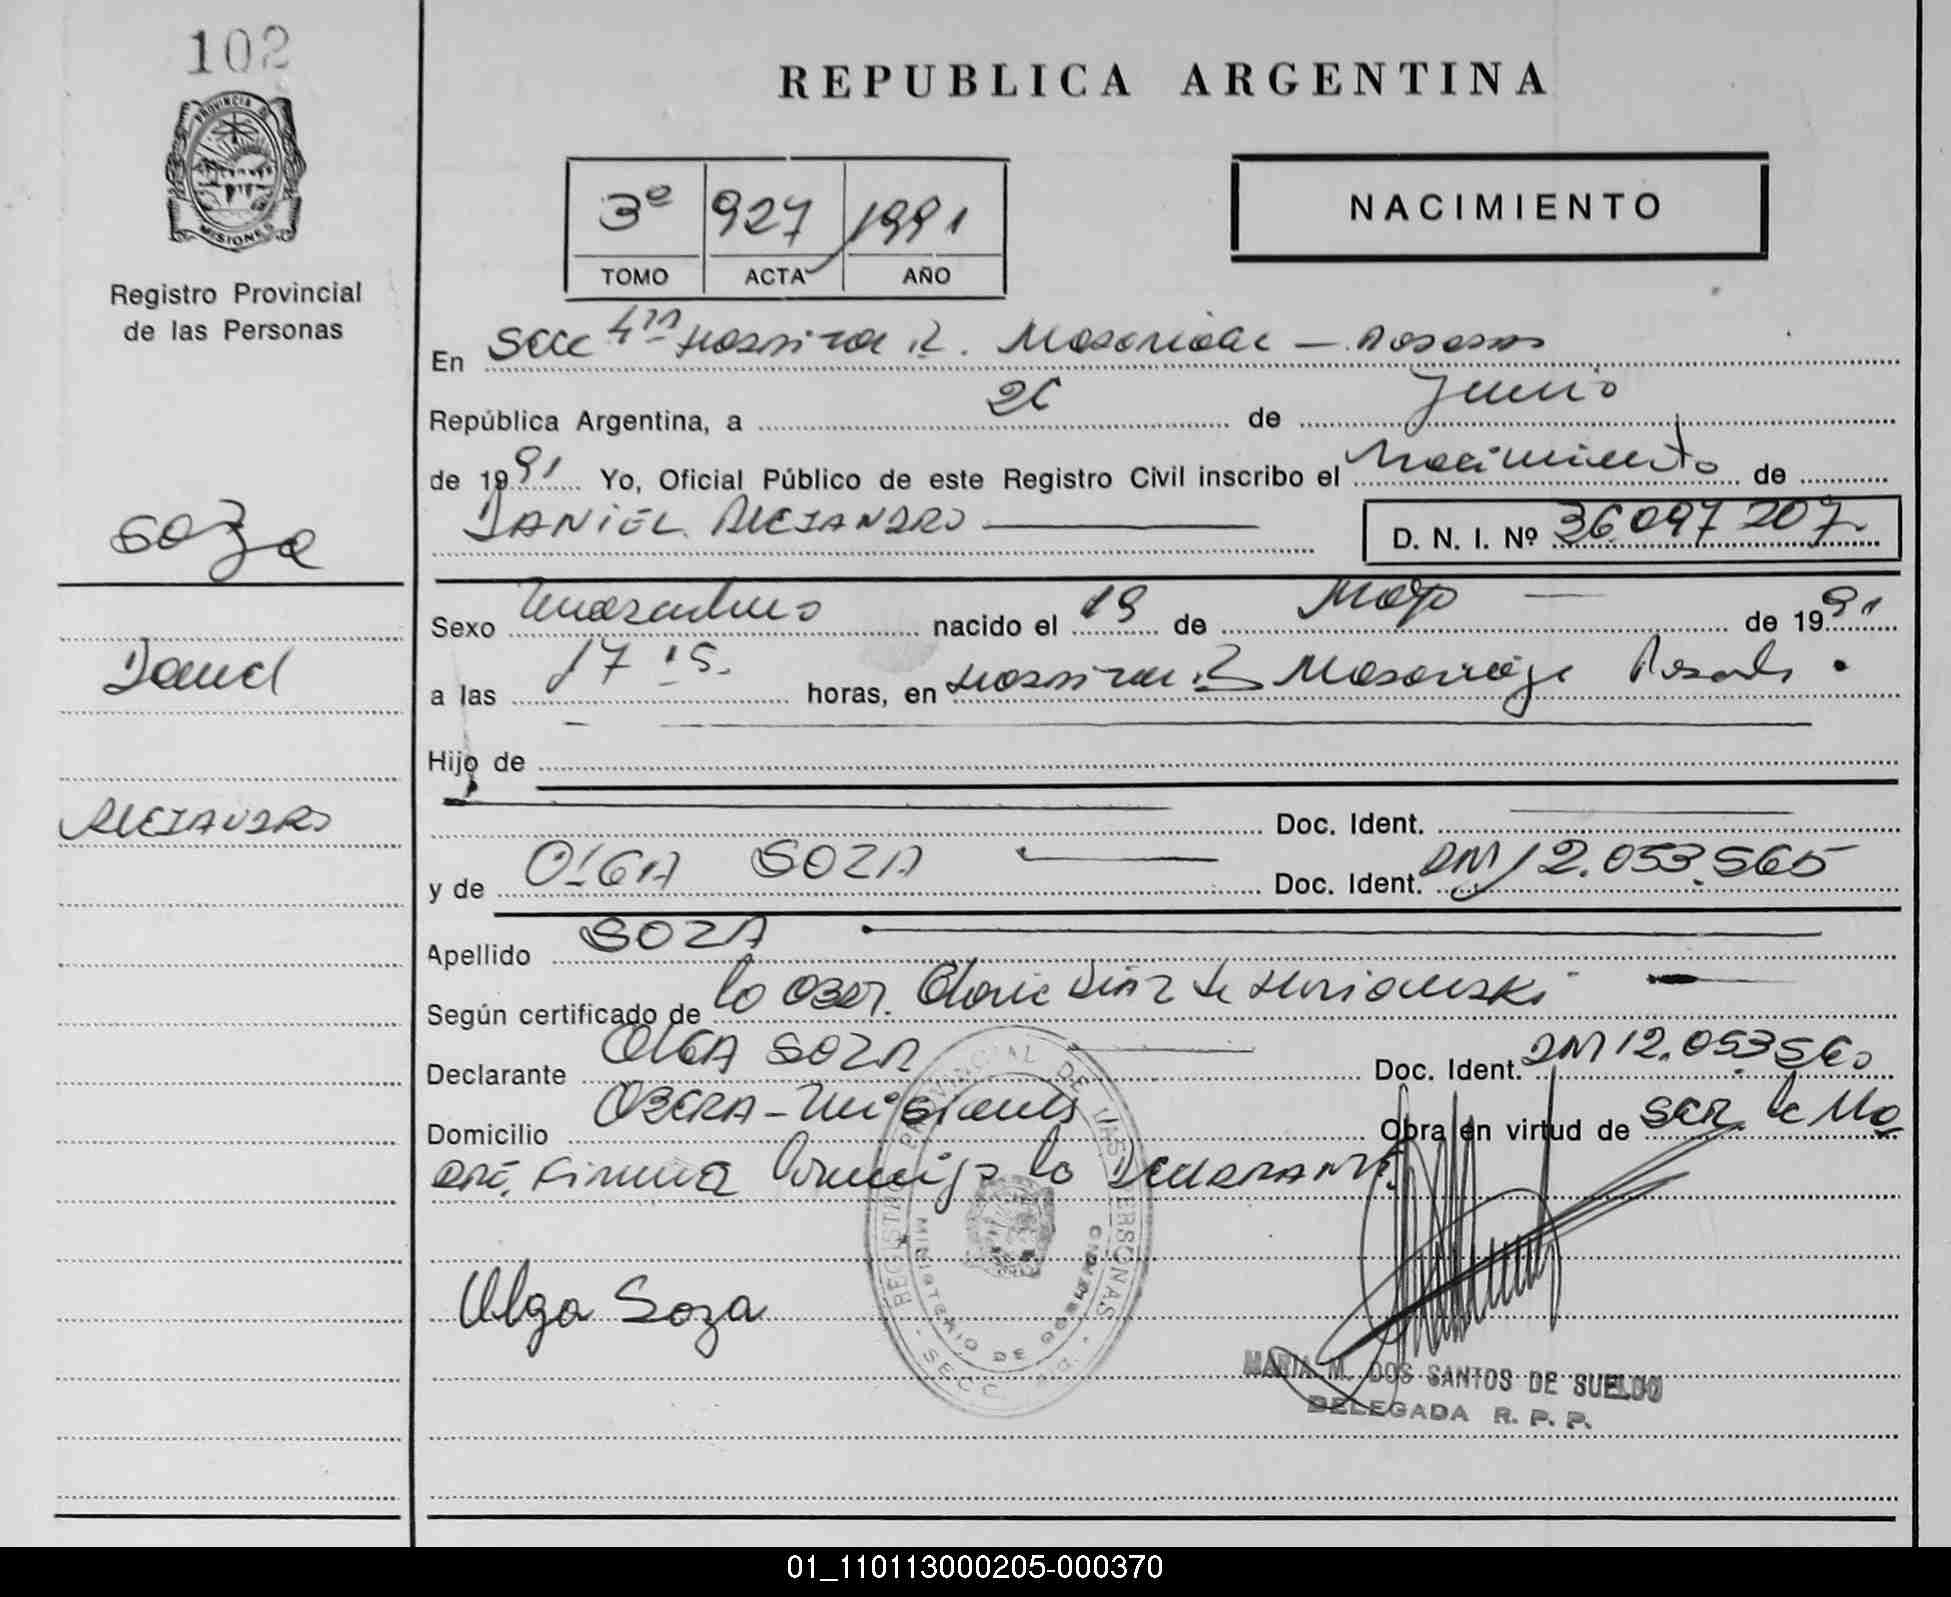 102
PROVINCIA DE
MISIONES
Registro Provincial
de las Personas
SOZA
Daniel
ALEJANDRO
REPUBLICA ARGENTINA
3º 927 1991
TOMO ACTA AÑO
NACIMIENTO
En Secc 4ta Hospital R. Madariaga - Posadas
República Argentina, a 26 de Junio
de 1991 Yo, Oficial Público de este Registro Civil inscribo el Nacimiento de
DANIEL ALEJANDRO D. N. I. Nº 36097207
Sexo masculino nacido el 19 de Mayo de 1991
a las 17 15 horas, en Hospital R Madariaga Posadas
Hijo de
Doc. Ident.
y de OLGA SOZA Doc. Ident. DNI 12.053.565
Apellido SOZA
Según certificado de la OBST. Gloria Diaz de
Declarante OLGA SOZA Doc. Ident. DNI 12.053 560
Domicilio OBERA - Misiones Obra en virtud de SER la Ma
DRE. Firma conmigo la DECLARANTE.
Olga Soza
REGISTRO PROVINCIAL DE LAS PERSONAS
MINISTERIO DE GOBIERNO
SECC. 4ta.
MARIA M. DOS SANTOS DE SUELDO
DELEGADA R. P. P.
01_110113000205-000370